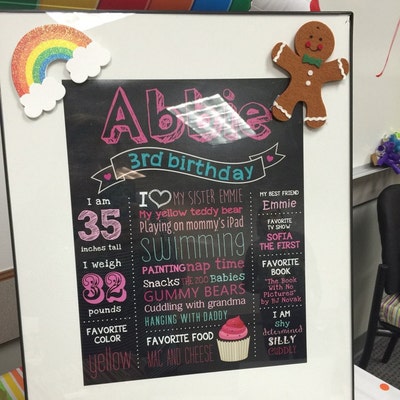 Abbie
3rd birthday
I am
35
inches tall
I weigh
32
pounds
FAVORITE
COLOR
yellow
I ♥ MY SISTER EMMIE
My yellow teddy bear
Playing on mommy's iPad
swimming
PAINTING nap time
Snacks Babies
GUMMY BEARS
Cuddling with grandma
HANGING WITH DADDY
FAVORITE FOOD
MAC AND CHEESE
MY BEST FRIEND
Emmie
FAVORITE
TV SHOW
SOFIA
THE FIRST
FAVORITE
BOOK
"The Book
With No
Pictures"
by BJ Novak
I AM
shy
determined
SILLY
cuddly